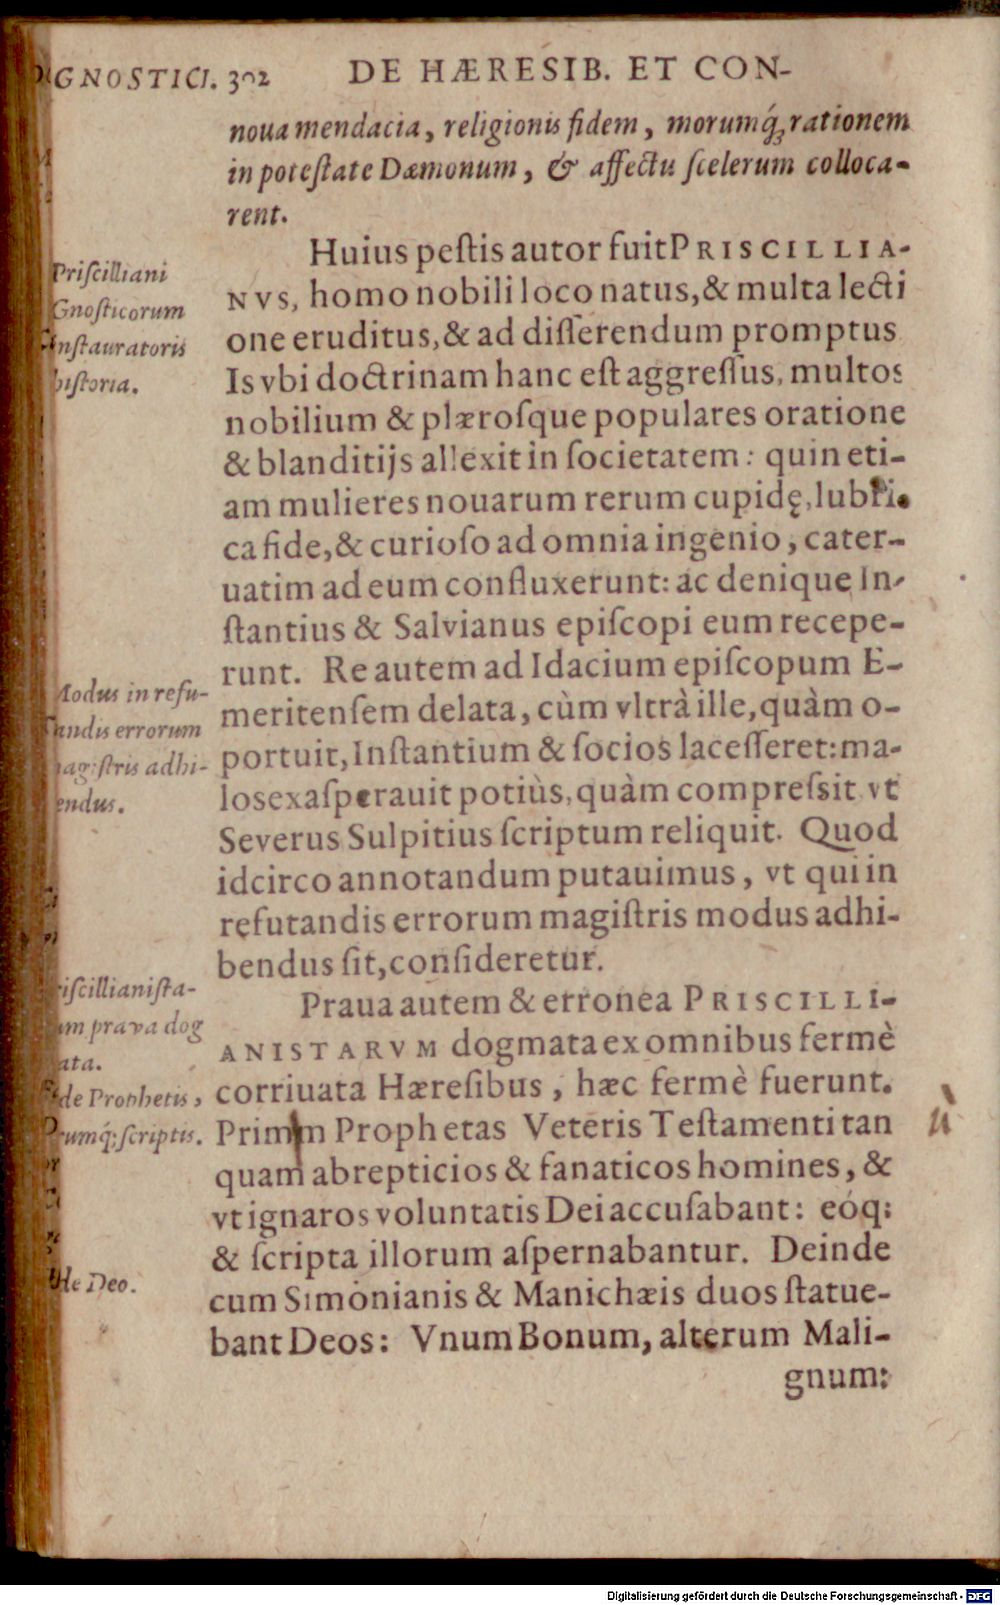 GNOSTICI. 302 DE HÆRESIB. ET CON-
noua mendacia, religionis fidem, morumq́; rationem
in poteſtate Dæmonum, & affectu ſcelerum colloca-
rent.
Huius peſtis autor fuit PRISCILLIA-
NVS, homo nobili loco natus, & multa lecti
one eruditus, & ad diſſerendum promptus
Is vbi doctrinam hanc eſt aggreſſus, multos
nobilium & plæroſque populares oratione
& blanditijs allexit in ſocietatem: quin eti-
am mulieres nouarum rerum cupidę, lubri-
ca fide, & curioſo ad omnia ingenio, cater-
uatim ad eum confluxerunt: ac denique In-
ſtantius & Salvianus epiſcopi eum recepe-
runt. Re autem ad Idacium epiſcopum E-
meritenſem delata, cùm vltrà ille, quàm o-
portuit, Inſtantium & ſocios laceſſeret: ma-
los exaſperauit potiùs, quàm compreſsit vt
Severus Sulpitius ſcriptum reliquit. Quod
idcirco annotandum putauimus, vt qui in
refutandis errorum magiſtris modus adhi-
bendus ſit, conſideretur.
Praua autem & erronea PRISCILLI-
ANISTARVM dogmata ex omnibus fermè
corriuata Hæreſibus, hæc fermè fuerunt.
Primm Prophetas Veteris Teſtamenti tan
quam abrepticios & fanaticos homines, &
vt ignaros voluntatis Dei accuſabant: eóq;
& ſcripta illorum aſpernabantur. Deinde
cum Simonianis & Manichæis duos ſtatue-
bant Deos: Vnum Bonum, alterum Mali-
gnum:
Priſcilliani
Gnoſticorum
inſtauratoris
hiſtoria.
Modus in refu-
tandis errorum
magiſtris adhi-
bendus.
riſcillianiſta-
um prava dog
ata.
de Prophetis,
rumq́; ſcriptis.
de Deo.
ù
Digitalisierung gefördert durch die Deutsche Forschungsgemeinschaft - DFG